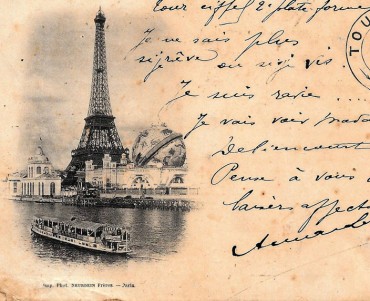 Tour eiffel 2e plate forme
Je ne sais plus
si je rêve ou si je vis.
Je suis ravie ....
Je vais voir Mada
Deliencourt
Pense à vous
baisers affect
Armande
TOU
Imp. Phot. Neurdein Frères. — Paris.